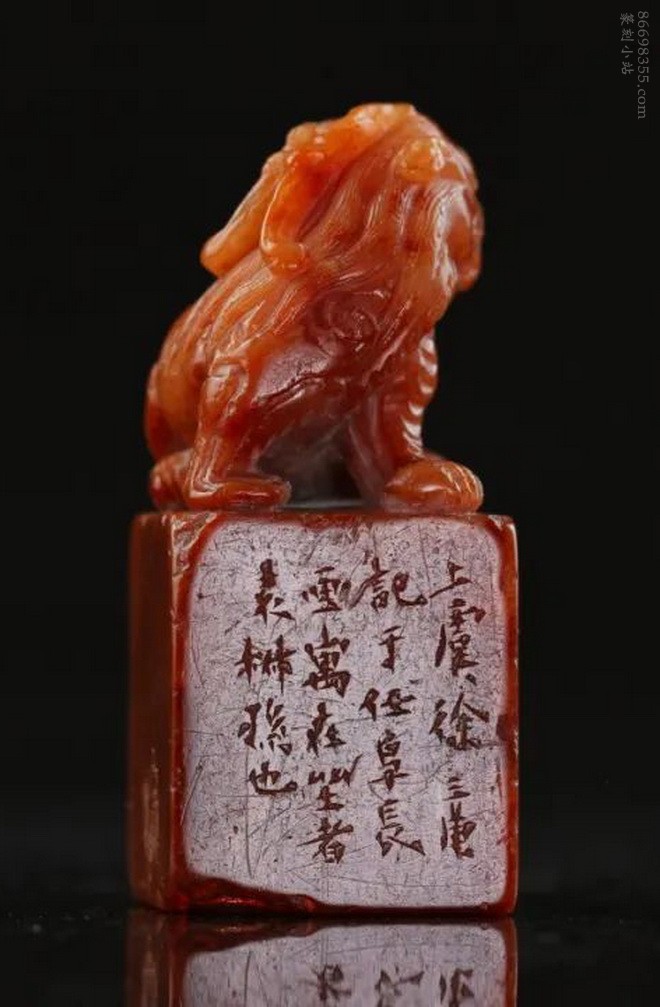 上虞徐三庚
記于任阜長
寓在坐者
袁
也
86698355.com
篆刻小站